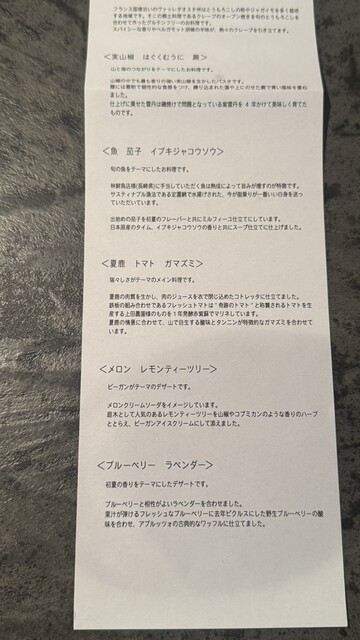 フランス国境沿いのヴァッレダオスタ州はとうもろこしの粉やジャガイモを多く栽培
する地域です。そこの郷土料理であるクレープのオーブン焼きを旬のとうもろこしを
合わせて作ったグルテンフリーのお料理です。
スパイシーな香りやベルガモット胡椒の辛味が、熱々のクレープを引き立てます。
＜実山椒 はぐくむうに 蕨＞
山と海のつながりをテーマにしたお料理です。
山椒の中でも最も香りの強い実山椒を生かしたパスタです。
麺には蕎粉で個性的な食感をつけ、
仕上げに乗せた雲丹は磯焼けで問題となっている紫雲丹を 4 年かけて美味しく育てた
ものです。
＜魚 茄子 イブキジャコウソウ＞
旬の魚をテーマにしたお料理です。
林鮮魚店様(長崎県)に手当していただく魚は熟成によって旨みが増すのが特徴です。
サスティナブル漁法である定置網で水揚げされた、今が脂乗りが一番いい白身を送っ
ていただいています。
出始めの茄子を初夏のフレーバーと共にミルフィーユ仕立てにしています。
日本原産のタイム、イブキジャコウソウの香りと共にスープ仕立てに仕上げました。
＜夏鹿 トマト ガマズミ＞
瑞々しさがテーマのメイン料理です。
夏鹿の肉質を生かし、肉のジュースを衣で閉じ込めたコトレッタに仕立てました。
鉄板の組み合わせであるフレッシュトマトは“奇跡のトマト”と称賛されるトマトを生
産する上田農園様のものを 1 年発酵赤紫蘇でマリネしています。
夏鹿の情景に合わせて、山で自生する酸味とタンニンが特徴的なガマズミを合わせて
います。
＜メロン レモンティーツリー＞
ビーガンがテーマのデザートです。
メロンクリームソーダをイメージしています。
庭木として人気のあるレモンティーツリーを山椒やコブミカンのような香りのハーブ
ととらえ、ビーガンアイスクリームにして添えました。
＜ブルーベリー ラベンダー＞
初夏の香りをテーマにしたデザートです。
ブルーベリーと相性がよいラベンダーを合わせました。
果汁が弾けるフレッシュなブルーベリーに去年ピクルスにした野生ブルーベリーの酸
味を合わせ、アブルッツォの古典的なワッフルに仕立てました。